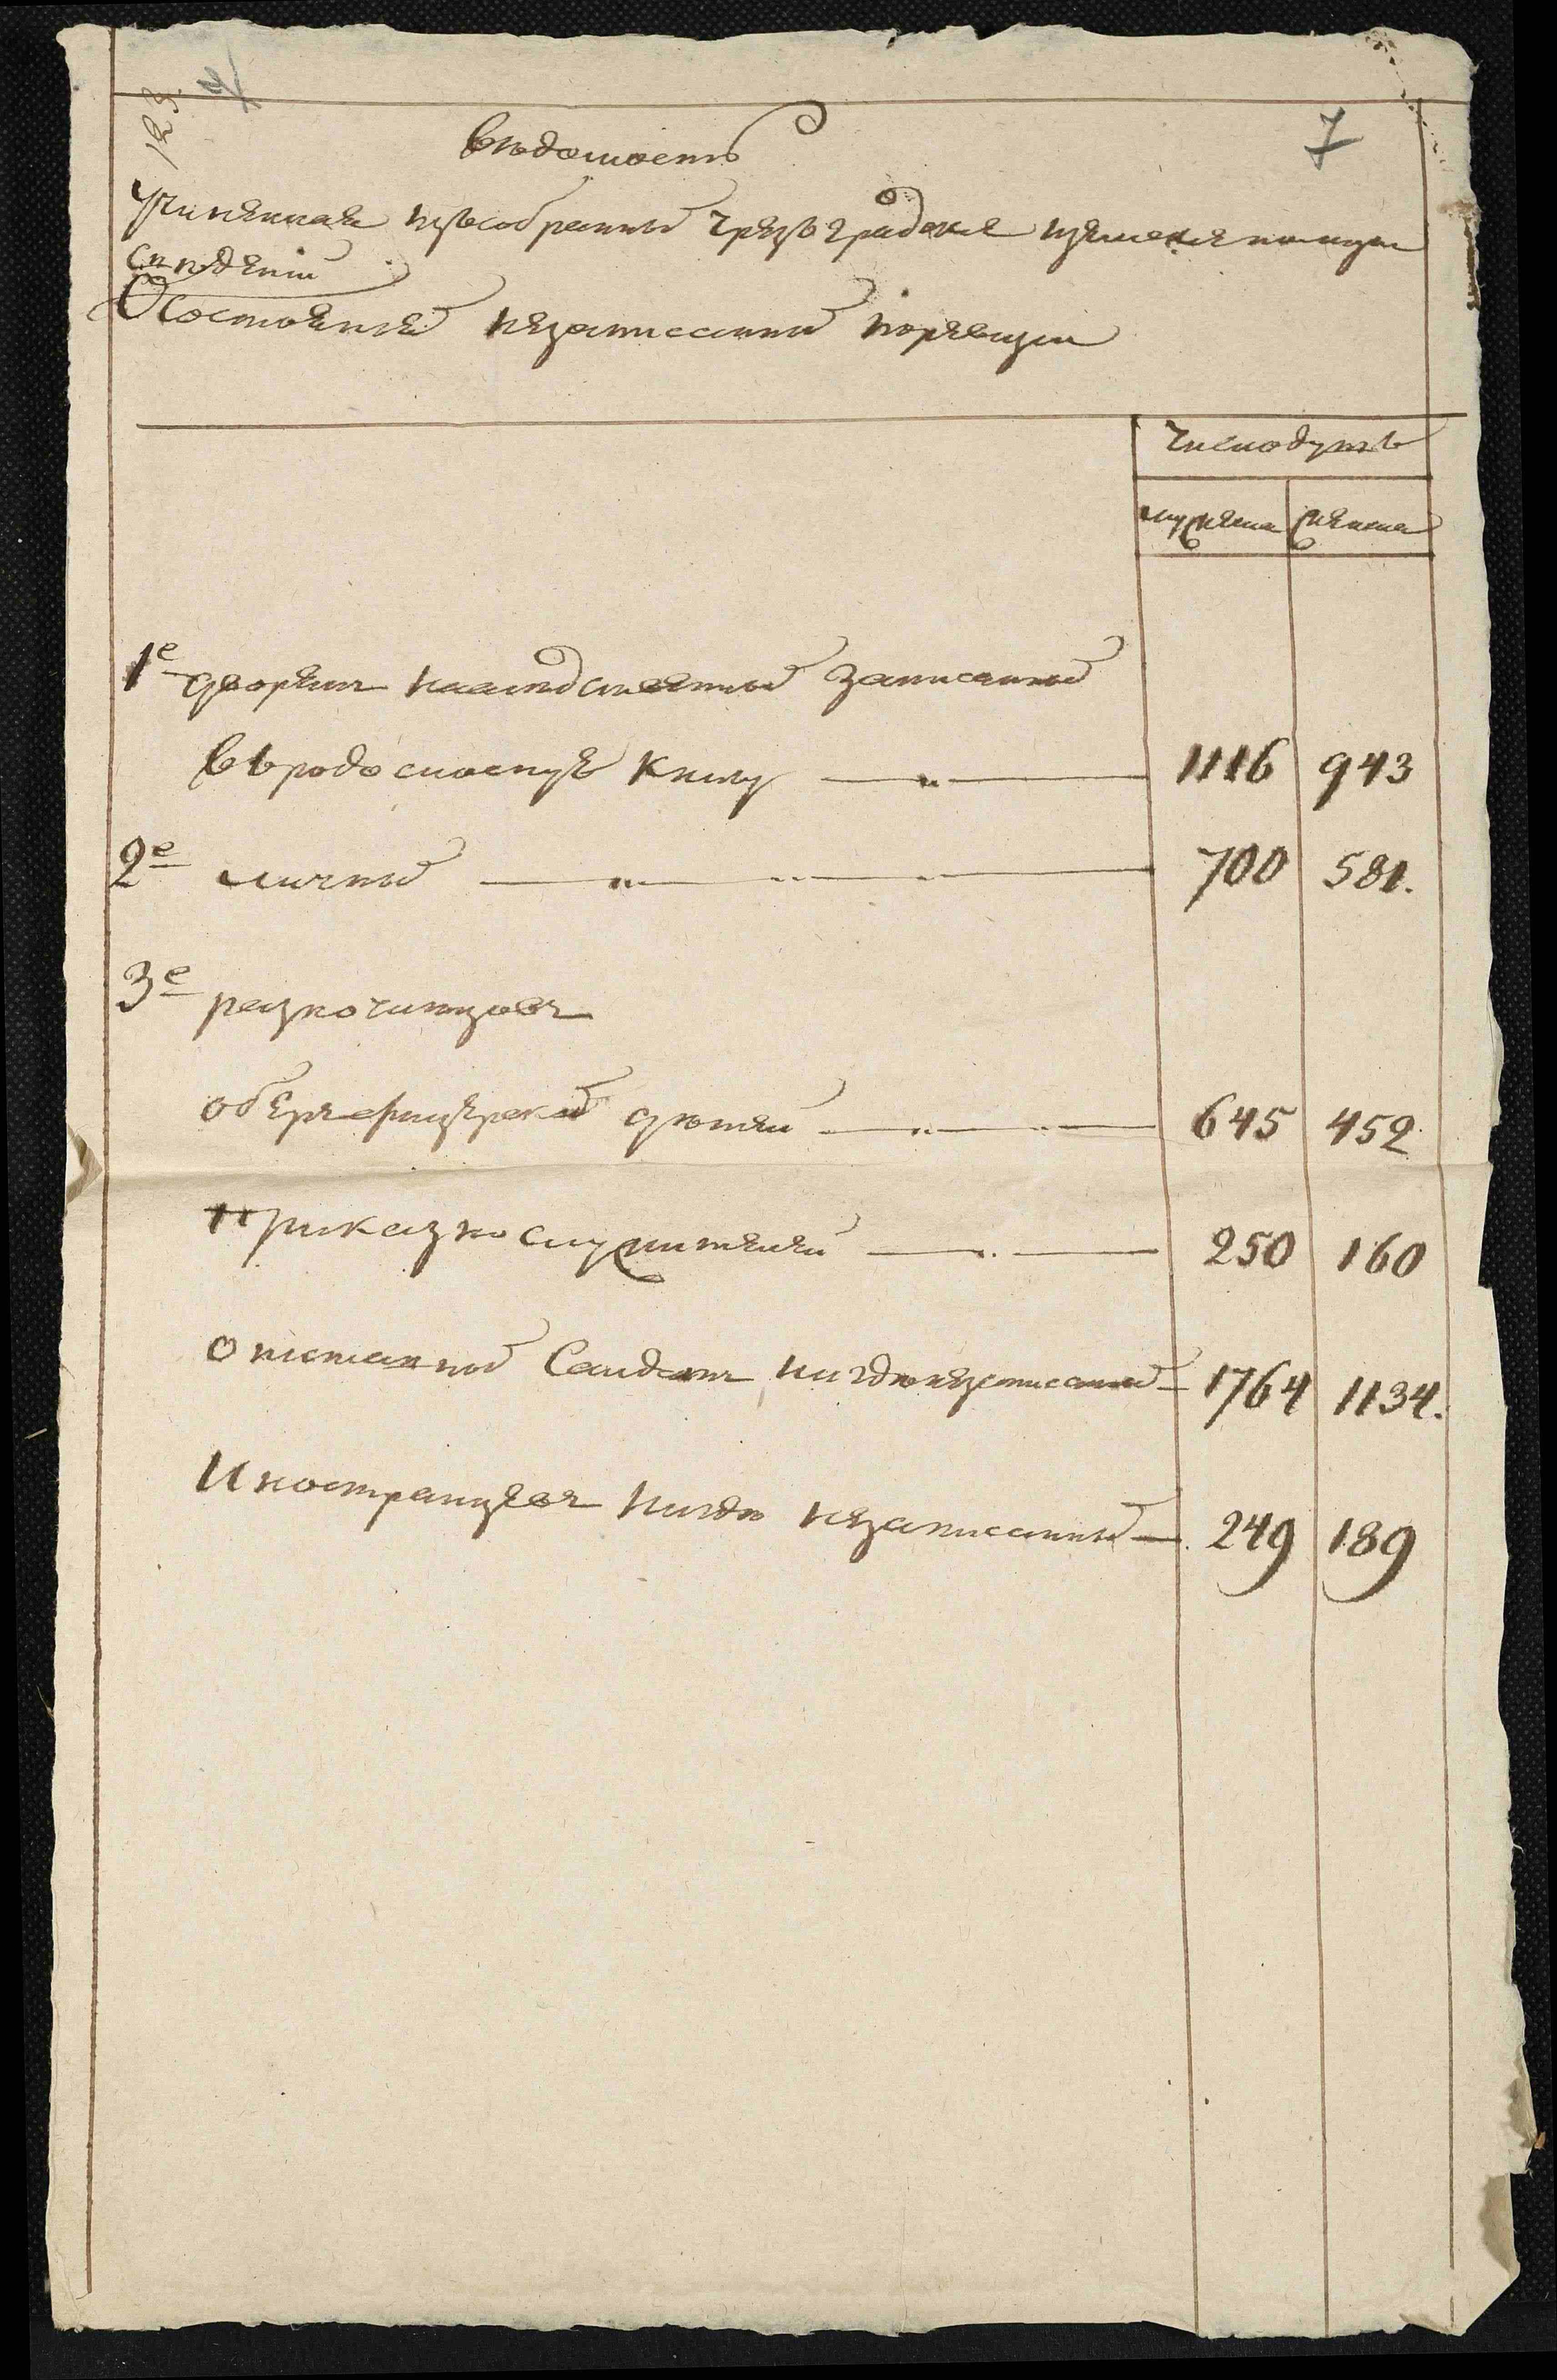 123.
7
Вѣдомость
Учиненная изъ собранныхъ чрезъ градские и земские полицы
сведѣний
О состоянией незаписанных по ревизии
Число душъ
мужеска женска
1е дворянъ наследственных записанных
въ родословную книгу 1116 943
2е личных 700 581.
3е разночинцовъ
оберъ офицерских дѣтей 645 452
приказнослужителей 250 160
отставных солдатъ нигдѣ незаписанных 1764 1134.
Иностранцевъ нигдѣ незаписанных 249 189